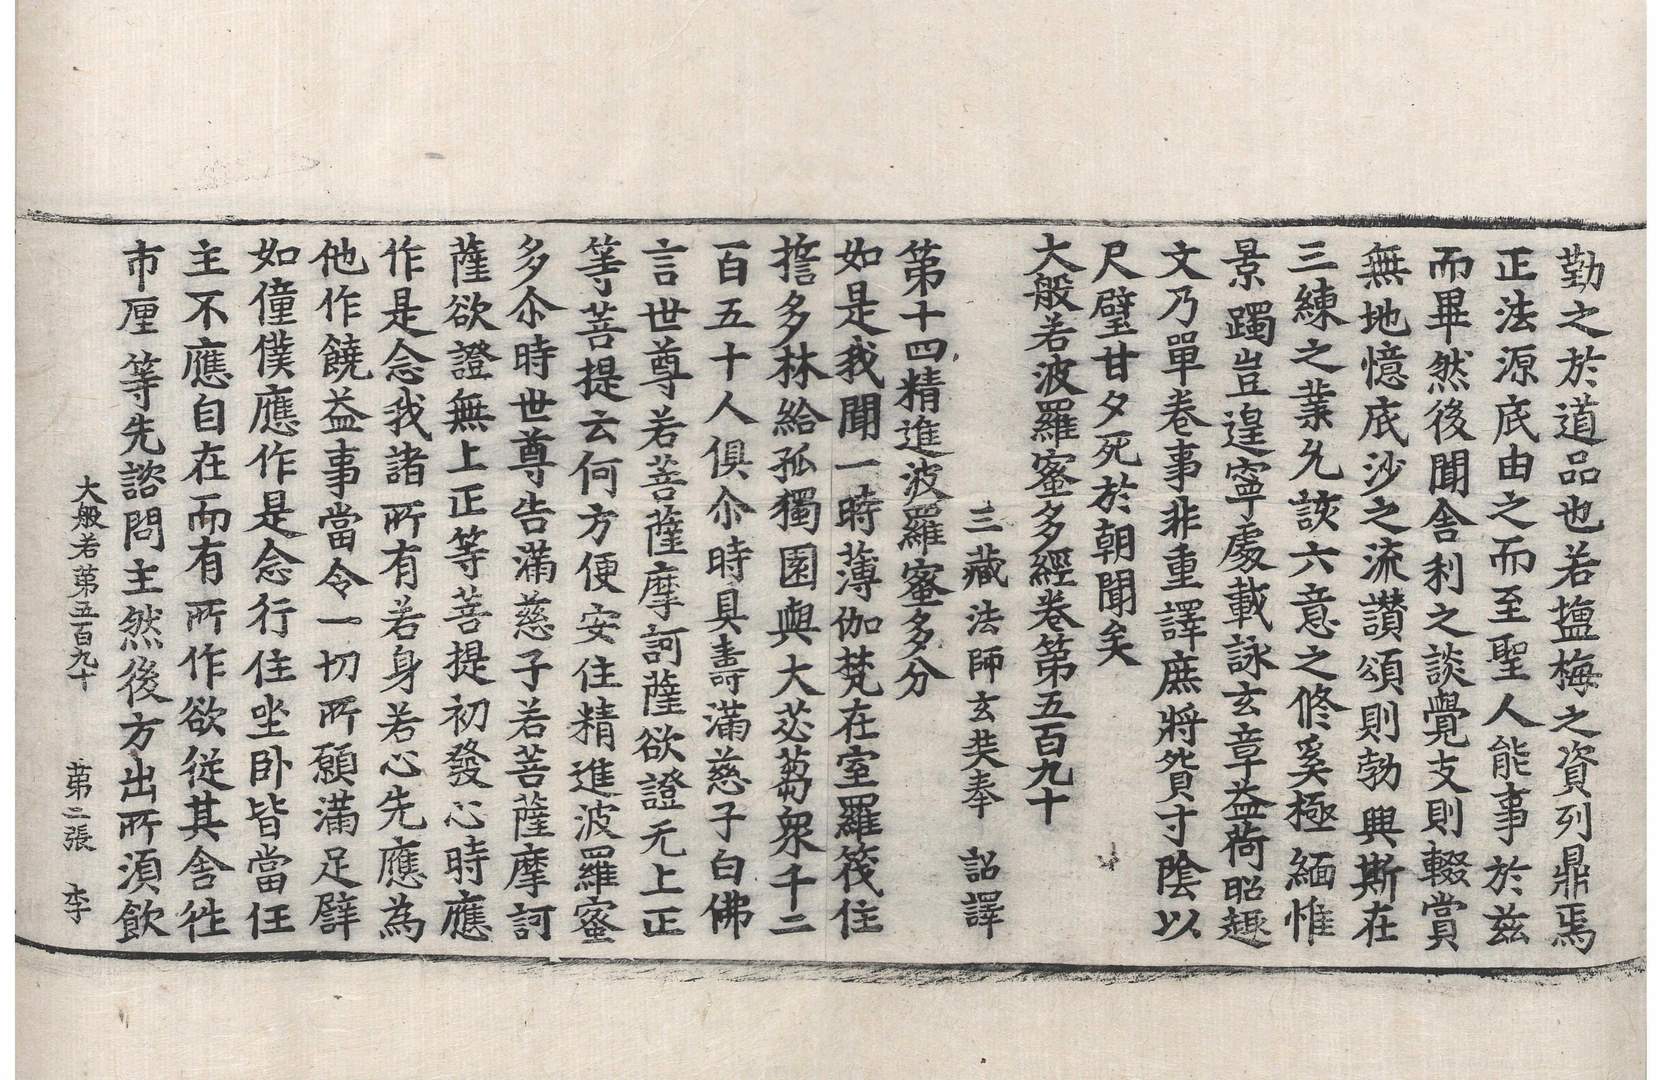 勤之於道品也若塩梅之資列鼎焉
正法源底由之而至聖人能事於兹
而畢然後聞舎利之談覺支則輟賞
無地憶底沙之流讃頌則勃興斯在
三練之業允該六意之修奚極緬惟
景躅豈遑寧處載詠玄章益荷昭趣
文乃單卷事非重譯庶將貲寸陰以
尺璧甘夕死於朝聞矣
大般若波羅蜜多經卷第五百九十
三藏法師玄奘奉 詔譯
第十四精進波羅蜜多分
如是我聞一時薄伽梵在室羅筏住
誓多林給孤獨園與大苾芻衆千二
百五十人俱尒時具壽滿慈子白佛
言世尊若菩薩摩訶薩欲證无上正
等菩提云何方便安住精進波羅蜜
多尒時世尊告滿慈子若菩薩摩訶
薩欲證無上正等菩提初發心時應
作是念我諸所有若身若心先應為
他作饒益事當令一切所願滿足譬
如僮僕應作是念行住坐卧皆當任
主不應自在而有所作欲從其舎徃
市廛等先諮問主然後方出所須飲
大般若第五百九十 第二張 李